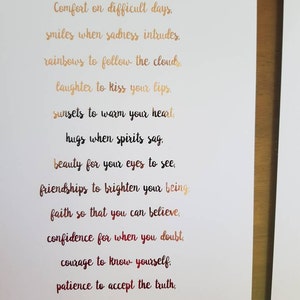 Comfort on difficult days,
smiles when sadness intrudes,
rainbows to follow the clouds,
laughter to kiss your lips,
sunsets to warm your heart,
hugs when spirits sag,
beauty for your eyes to see,
friendships to brighten your being,
faith so that you can believe,
confidence for when you doubt,
courage to know yourself,
patience to accept the truth,